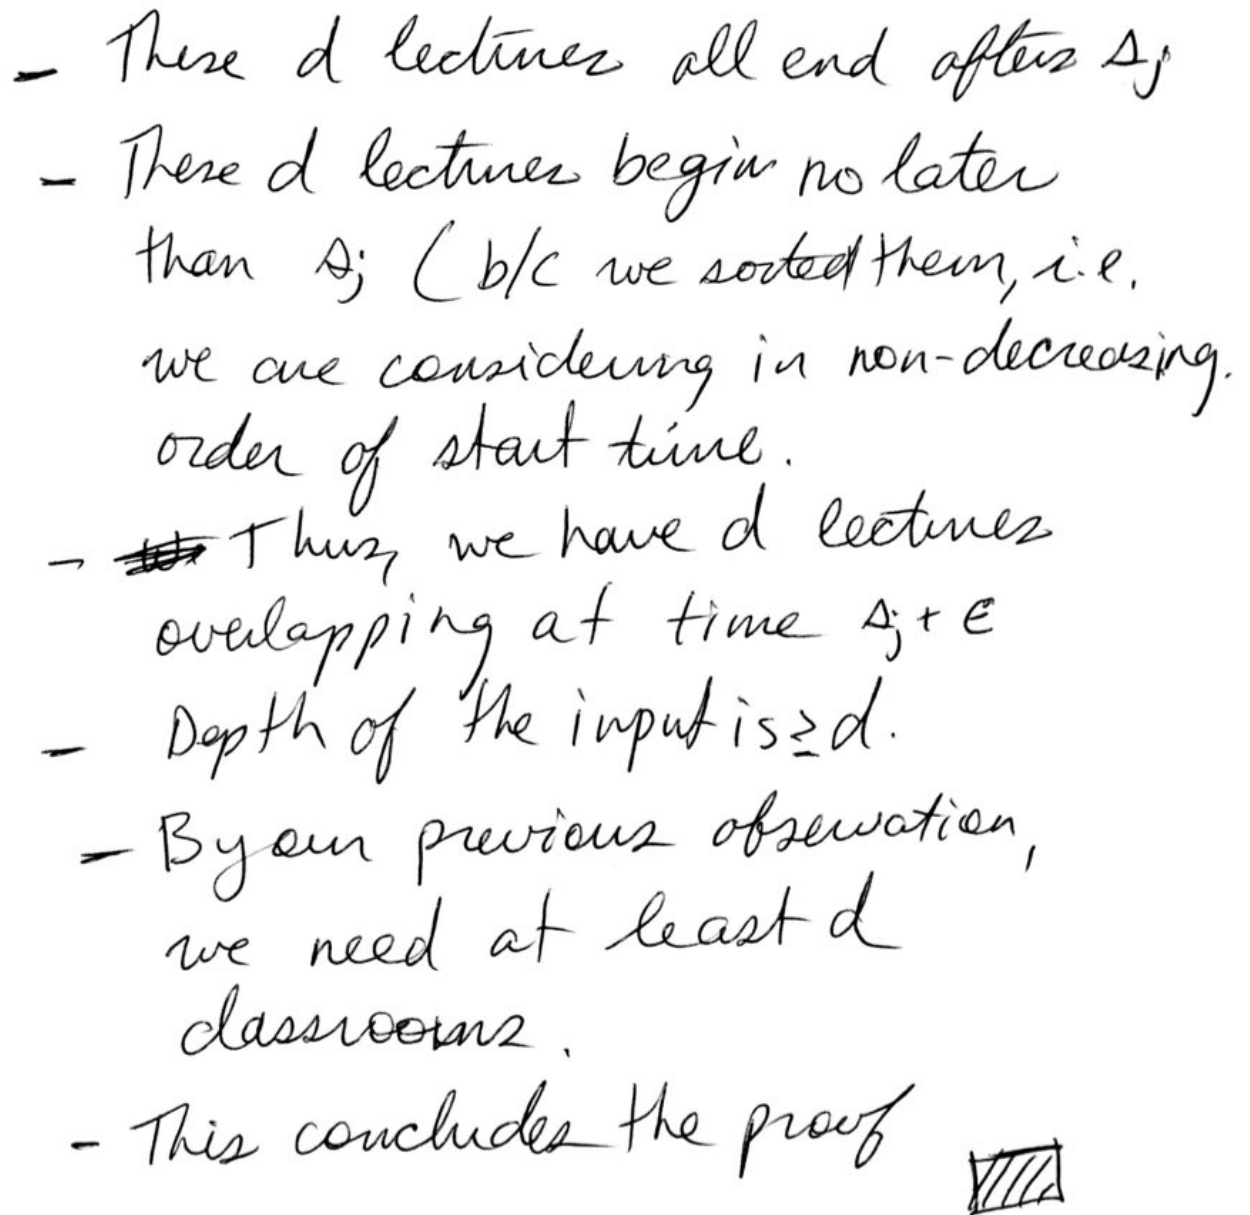 - These d lectures all end after sj
- These d lectures begin no later
than sj ( b/c we sorted them, i.e.
we are considering in non-decreasing.
order of start time.
- Thus, we have d lectures
overlapping at time sj + ε
- Depth of the input is ≥ d.
- By our previous observation,
we need at least d
classrooms.
- This concludes the proof